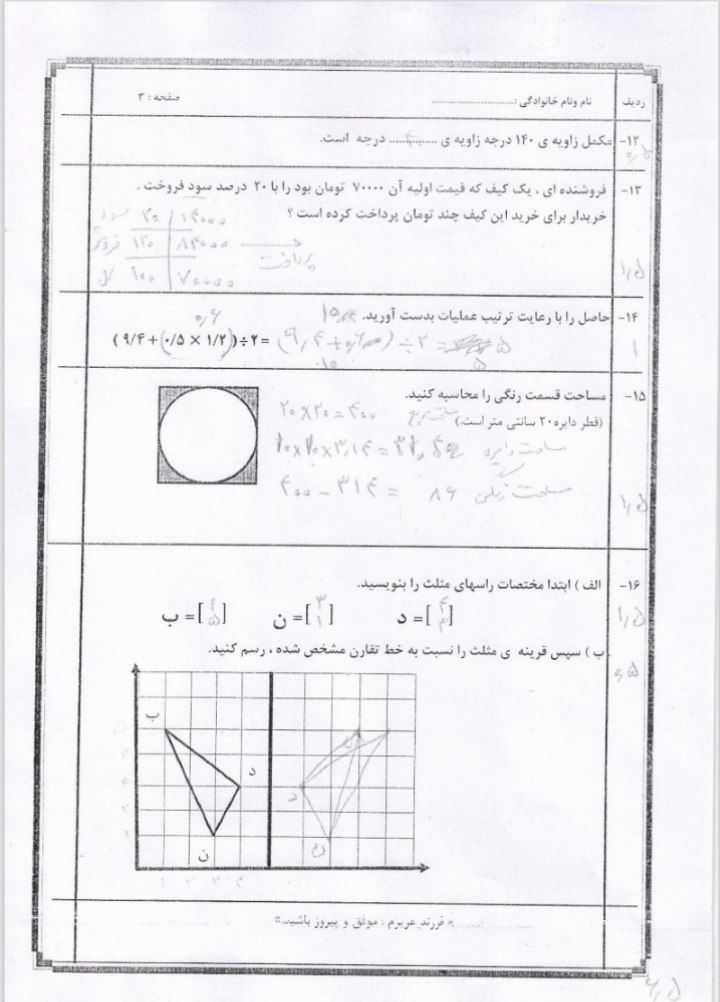 ردیف نام ونام خانوادگی :.............................. صفحه : ۳
۱۲- مکمل زاویه ی ۱۴۰ درجه زاویه ی ............ درجه است.
۰٫۵
۱۳- فروشنده ای ، یک کیف که قیمت اولیه آن ۷۰۰۰۰ تومان بود را با ۲۰ درصد سود فروخت .
خریدار برای خرید این کیف چند تومان پرداخت کرده است ؟
سود ۲۰ ۱۴۰۰۰
فروش ۱۲۰ ۸۴۰۰۰
پرداخت
کل ۱۰۰ ۷۰۰۰۰
۱٫۵
۱۴- حاصل را با رعایت ترتیب عملیات بدست آورید.
۰٫۶
( ۹/۴ + (۰/۵ × ۱/۲)) ÷ ۲ = (۹٫۴ + ۰٫۶) ÷ ۲ = ۵
۱۰ ۵
۱
۱۵- مساحت قسمت رنگی را محاسبه کنید.
(قطر دایره ۲۰ سانتی متر است.) مساحت مربع ۲۰×۲۰=۴۰۰
مساحت دایره ۱۰×۱۰×۳٫۱۴=
مساحت رنگی ۴۰۰ - ۳۱۴ = ۸۶
۱٫۵
۱۶- الف ) ابتدا مختصات راسهای مثلث را بنویسید.
د =[۴ ۳] ن =[۳ ۱] ب =[۱ ۵]
۱٫۵
ب ) سپس قرینه ی مثلث را نسبت به خط تقارن مشخص شده ، رسم کنید.
۰٫۵
ب
د
د
ن
ن
۱ ۲ ۳ ۴
« فرزند عزیزم : موفق و پیروز باشید.»
۶٫۵